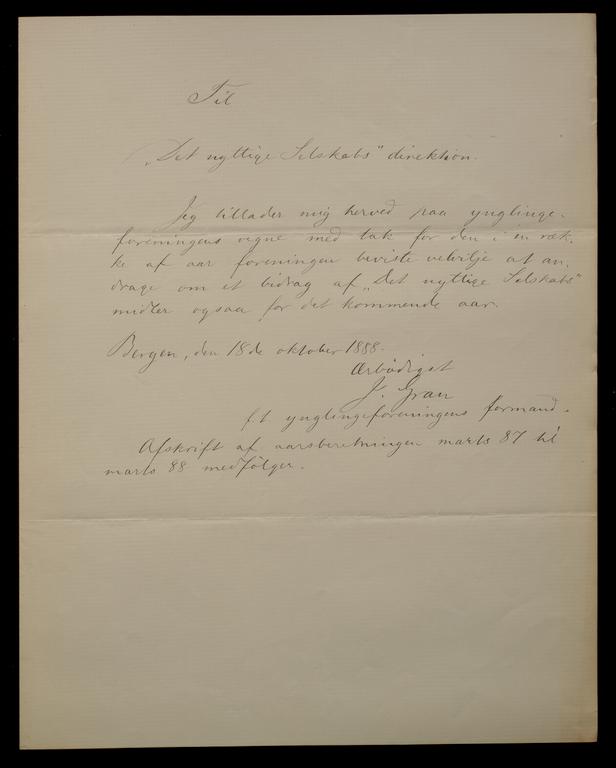 Til
„Det nyttige Selskabs" direktion.
Jeg tillader mig herved paa ynglinge-
foreningens vegne med tak for den i en ræk-
ke af aar foreningen beviste velvilje at an-
drage om et bidrag af „Det nyttige Selskabs"
midler ogsaa for det kommende aar.
Bergen, den 18de oktober 1888.
Ærbødigst
J. Gran
f. t. ynglingeforeningens formand.
Afskrift af aarsberetningen marts 87 til
marts 88 medfølger.